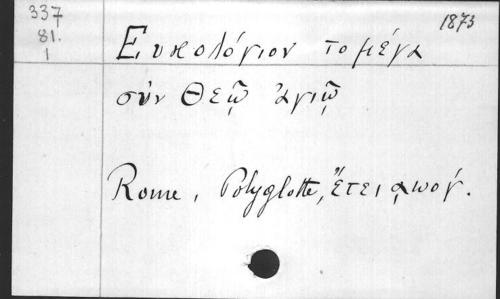 337
81.
1
1873
Ευχολόγιον το μέγα
σὺν Θεῷ ἁγιῷ
Rome, Polyglotte, ἔτει ͵αωογ́.